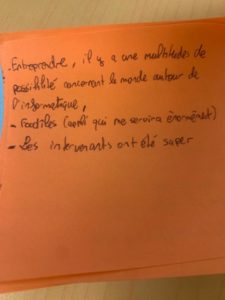 -Entreprendre, il y a une multitudes de
possibilité concernant le monde autour de
l'informatique,
- (outil qui me servira énormément)
- Les intervenants ont été super